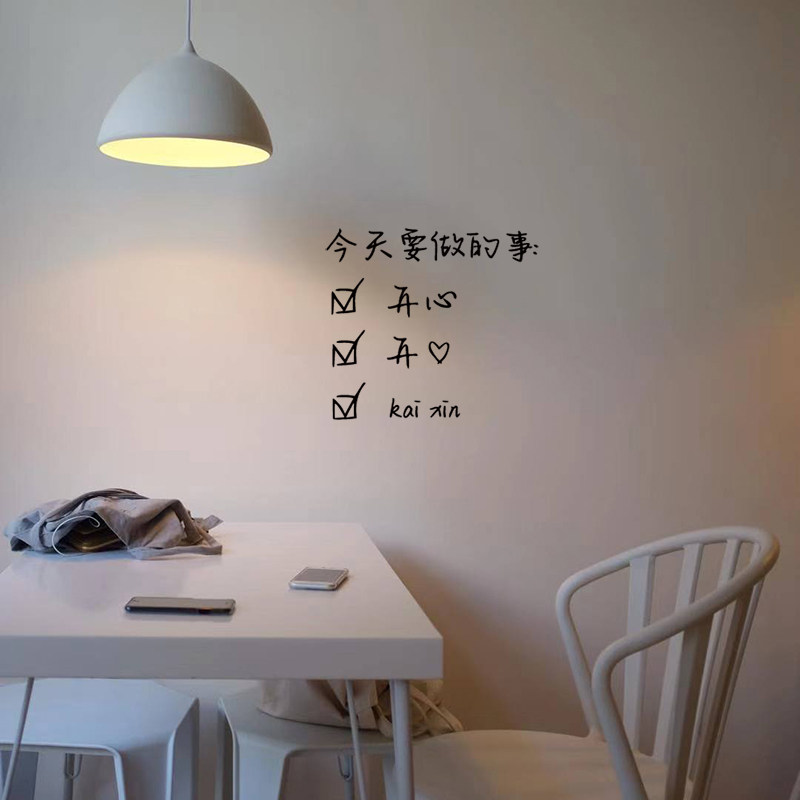 今天要做的事:
开心
开♡
kāi xīn